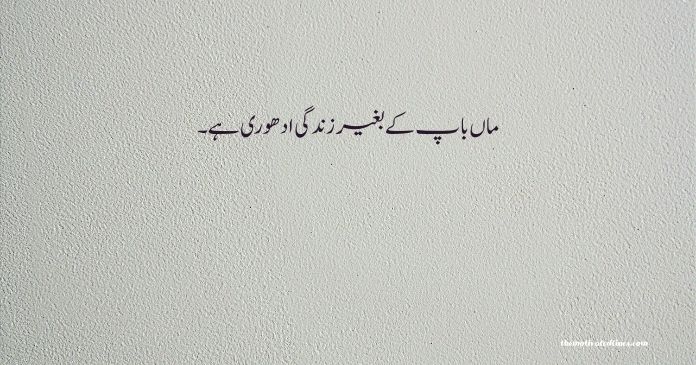 ماں باپ کے بغیر زندگی ادھوری ہے۔
themotivatedlines.com